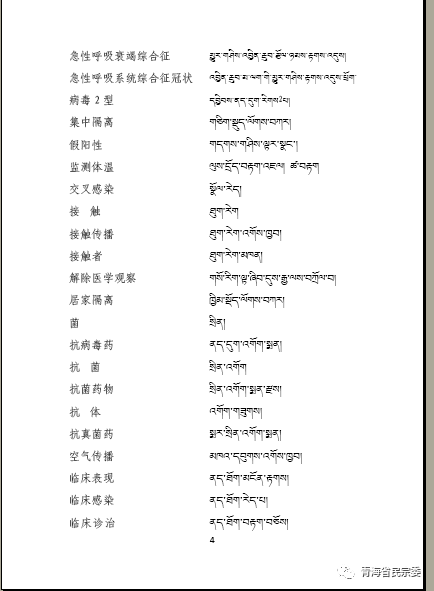 急性呼吸衰竭综合征 མྱུར་གཤིས་འབྱིན་རྔུབ་ཐོལ་ཉམས་རྟགས་འདུས།
急性呼吸系统综合征冠状 འབྱིན་རྔུབ་མ་ལག་གི་མྱུར་གཤིས་རྟགས་འདུས་ཕྲོག་
病毒 2 型 དབྱིབས་ནད་དུག་རིགས2པ།
集中隔离 གཅིག་སྡུད་ལོགས་བཀར།
假阳性 གདགས་གཤིས་ལྟར་སྣང་།
监测体温 ལུས་དྲོད་བརྟག་འཇལ། ཚ་བརྟག
交叉感染 སྣོལ་རེད།
接 触 ཐུག་རེག
接触传播 ཐུག་རེག་འགོས་ཁྱབ།
接触者 ཐུག་རེག་མཁན།
解除医学观察 གསོ་རིག་ལྟ་ཞིབ་དུས་རྒྱུ་ལས་བཀྲོལ་བ།
居家隔离 ཁྱིམ་སྡོད་ལོགས་བཀར།
菌 སྲིན།
抗病毒药 ནད་དུག་འགོག་སྨན།
抗 菌 སྲིན་འགོག
抗菌药物 སྲིན་འགོག་སྨན་རྫས།
抗 体 འགོག་གཟུགས།
抗真菌药 སྨར་སྲིན་འགོག་སྨན།
空气传播 མཁའ་དབུགས་འགོས་ཁྱབ།
临床表现 ནད་ཐོག་མངོན་རྟགས།
临床感染 ནད་ཐོག་རེད་པ།
临床诊治 ནད་ཐོག་བརྟག་བཅོས།
4
青海省民宗委